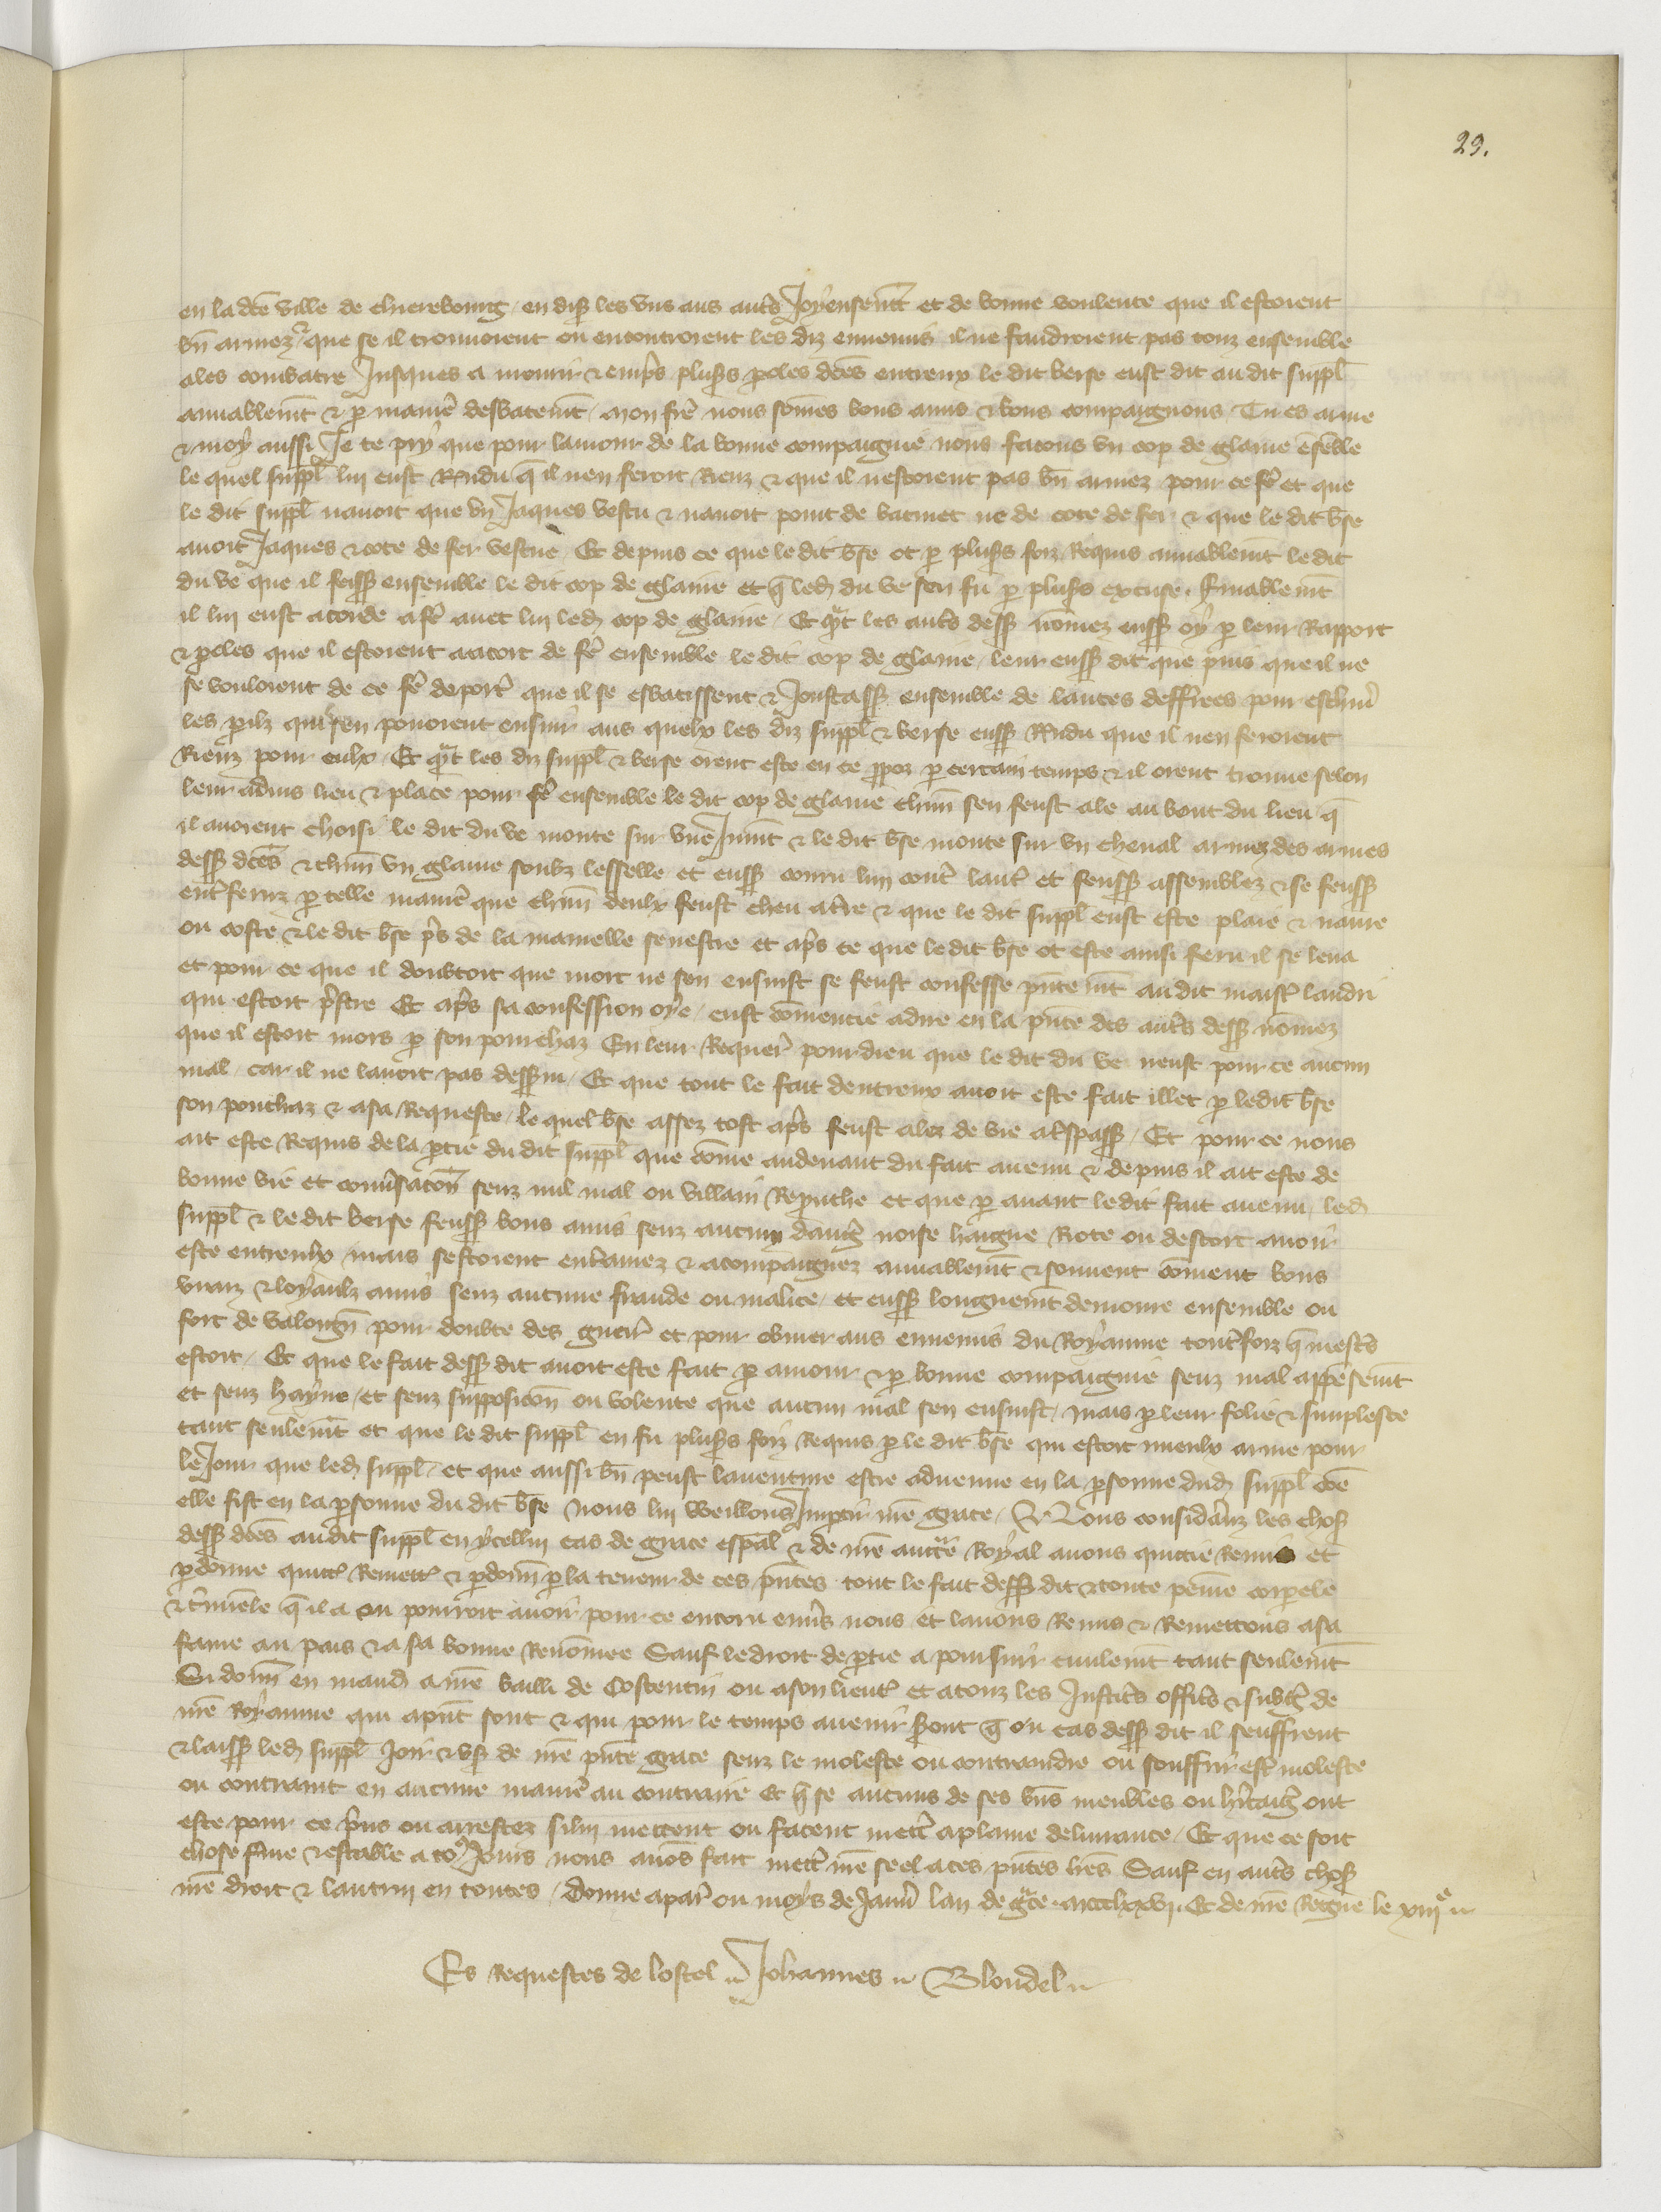 29.
en la dce ville de chierebourg / en disß les uns aus autrs Joyeusemt et de bonne voulente que il estoient
bn armez / que se il trouvoient ou encontroient les diz ennemis il ne faudroient pas touz ensemble
ales combatre Jusques a mourir & empres plusrs peles dces entreux le dit berse eust dit au dit suppl
amiablemt & p maniere desbatemt / mon frere nous somes bons amis & bons compaignons Tu es arme
& moy aussi Je te pry que pour lamour de la bonne compaignie nous facons un cop de glaive ensemble
le quel suppl lui eust Rndu q il nen feroit Riens & que il nestoient pas bn armez pour ce fe et que
le dit suppl navoit que un Jaques vestu & navoit point de bacinet ne de cote de fer & que le dit bse
avoit Jaques & cote de fer vestue Et depuis ce que le dit bse ot p plusrs foiz Requis amiablemt le dit
du ve que il feissß ensemble le dit cop de glaive et q led du ve sen fu p plusrs excuse. finablemt
il lui eust acorde a fe avec lui led cop de glaive / Et qnt les autrs dessß nomez eussß oy p leur Rapport
& peles que il estoient acort de fe ensemble le dit cop de glaive / leur eussß dit que puis que il ne
se vouloient de ce fe deporter que il se esbatissent & Joustassß ensemble de lances defferees pour eschiver
les perilz qui sen povoient ensuir aus quelx les diz suppl & berse eussß Rndu que il nen feroient
Riens pour eulx / Et qnt les diz suppl & berse orent este en ce ppoz p certain temps & il orent trouve selon
leur advis lieu & place pour fe ensemble le dit cop de glaive chun sen feust ale au bout du lieu q
il avoient choisi le dit du ve monte sur une Jumt & le dit bse monte sur un cheval armez des armes
dessß dces & chun un glaive soubz lesselle et eussß couru lun contr lautr et feussß assemblez & se feussß
entrferuz p telle maniere que chun deulx feust cheu a terre & que le dit suppl eust este plaie & navre
ou coste & le dit bse pres de la mamelle senestre et apres ce que le dit bse ot este ainsi feru il se leva
et pour ce que il doubtoit que mort ne sen ensuist se feust confesse pntemt au dit maistr landri
qui estoit prestre Et apres sa confession oye / eust comencie a dire en la pnce des autrs dessß nomez
que il estoit mors p son pourchaz En leur Requert pour dieu que le dit du ve neust pour ce aucun
mal / car il ne lavoit pas desservi / Et que tout le fait dentreux avoit este fait illec p ledit bse
son pouchaz & a sa Requeste / le quel bse assez tost apres feust alez de vie a trspassß / Et pour ce nous
ait este Requis de la ptie du dit suppl que come au devant du fait avenu & depuis il ait este de
bonne vie et conversacon senz nul mal ou villain Reprouche et que p avant ledit fait avenu led
suppl & le dit berse feussß bons amis senz aucun dangr noise haigne Riote ou descort avoir
este entreulx / mais sestoient entramez & acompaignez amiablemt & souvent coment bons
vraiz & loyaulz amis senz aucune fraude ou malice / et eussß longuemt demoure ensemble ou
fort de valongn pour doubte des guerr et pour obvier aus ennemis du Royaume toutrfoiz q mestrs
estoit / Et que le fait dessß dit avoit este fait p amour & p bonne compaignie senz mal appensemt
et senz hayne / et senz supposicon ou volente que aucun mal sen ensuist / mais p leur folie & simplesce
tant seulemt et que le dit suppl en fu plusrs foiz Requis p le dit bse qui estoit mieulx arme pour
le Jour que led suppl / et que aussi bn peust laventure estre advenue en la psonne dud suppl coe
elle fist en la psonne du dit bse nous lui veillons Impartir nre grace / Nous considerans les chosß
dessß dces au dit suppl en ycellui cas de grace espal & de nre auctte Royal avons quittie Remis et
pdonne quittr Remettr & pdonn p la teneur de ces pntes tout le fait dessß dit & toute peine corpele
& crimele q il a ou pourroit avoir pour ce encoru envrs nous et lavons Remis & Remettons a sa
fame au pais & a sa bonne Renomee Sauf le droit de ptie a poursuir civilemt tant seulemt
Si donn en mand a nre bailli de Costentin ou a son lieutr et a touz les Justicrs officrs & subgr de
nre Royaume qui a pnt sont & qui pour le temps avenir sront q ou cas dessß dit il seuffrent
& laissß led suppl Joir & usß de nre pnte grace senz le moleste ou contraindre ou souffrir estr moleste
ou contraint en aucune maniere au contraire Et q se aucuns de ses bns meubles ou heritaigr ont
este pour ce prins ou arrestez si lui mettent ou facent mettr a plaine delivrance / Et que ce soit
chose ferme & estable a tous Jours nous avos fait mettr nre seel a ces pntes lres Sauf en autrs chosß
nre droit & lautrui en toutes / donne a paris ou moys de Janvr lan de grce. mccclxxvj. Et de nre Regne le xiije
Es Requestes de lostel Johannes Blondel